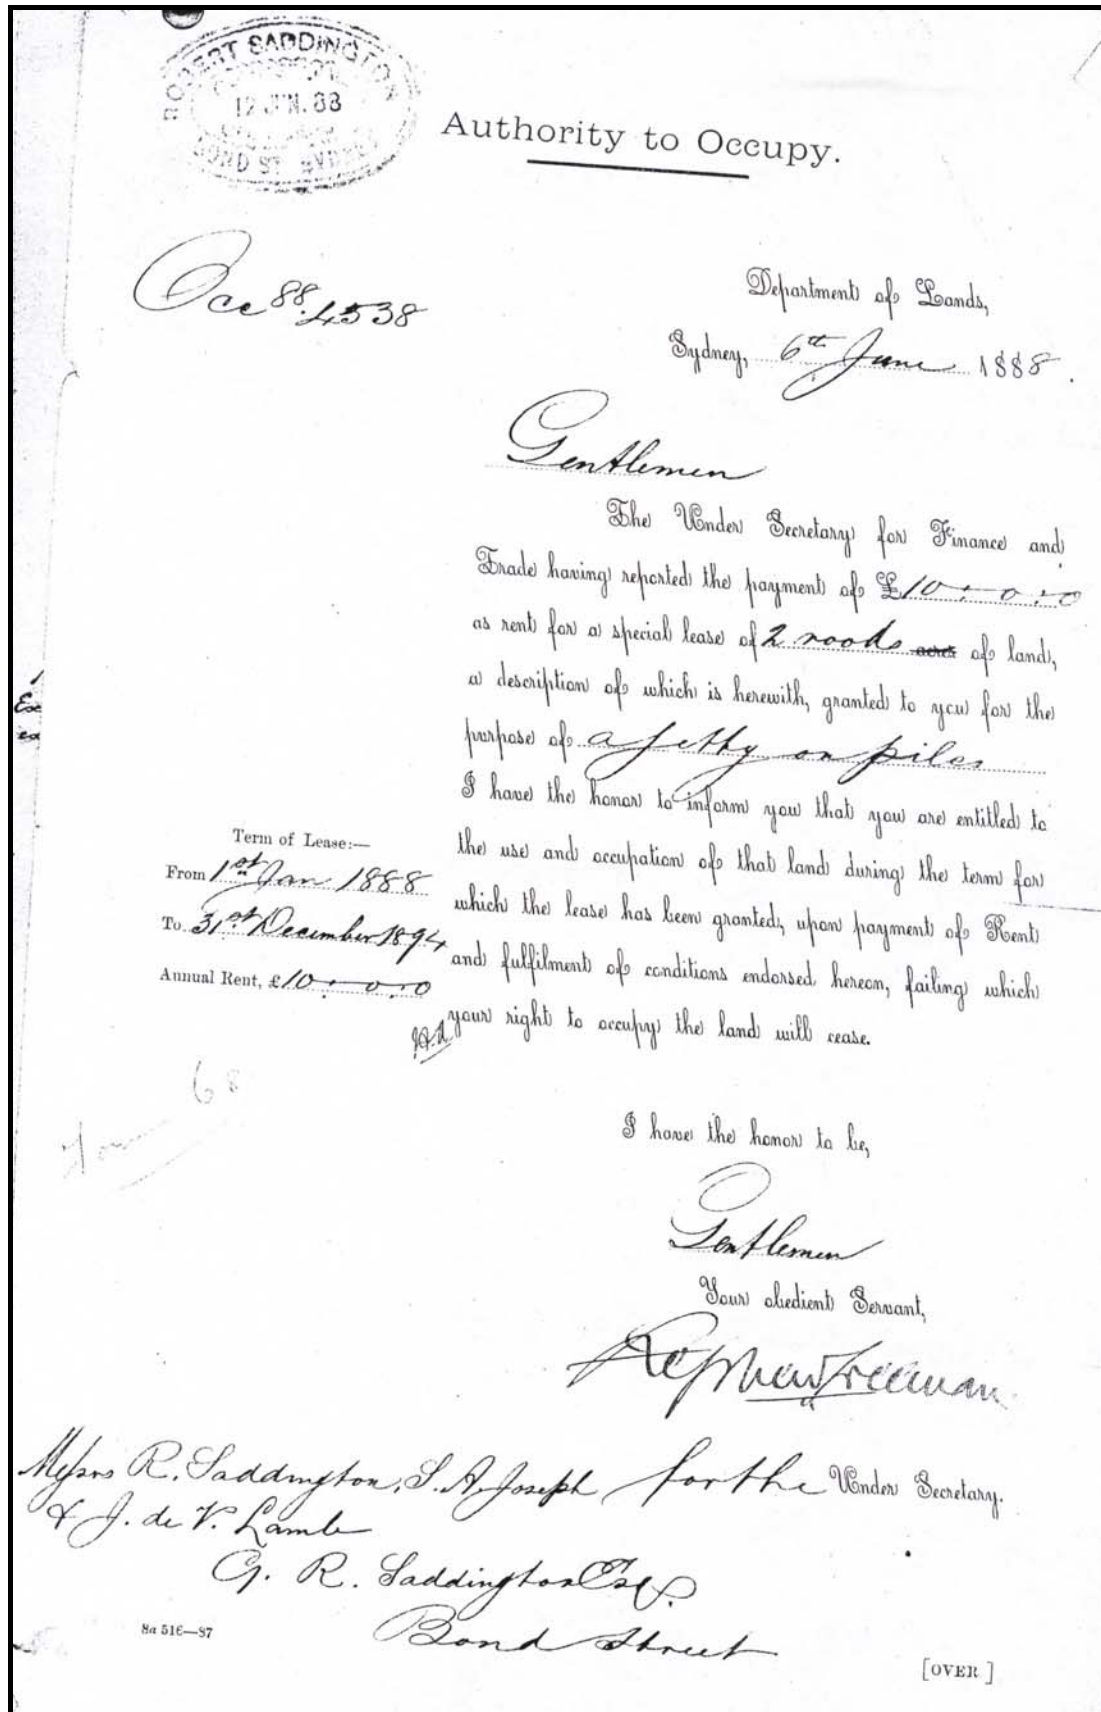 ROBERT SADDINGTON
12 JUN. 88
BOND ST SYDNEY
Authority to Occupy.
Occ 88.4538
Department of Lands,
Sydney, 6th June 1888.
Gentlemen
The Under Secretary for Finance and
Trade having reported the payment of £10..0..0
as rent for a special lease of 2 roods acres of land,
a description of which is herewith, granted to you for the
purpose of a jetty on piles
I have the honor to inform you that you are entitled to
the use and occupation of that land during the term for
which the lease has been granted, upon payment of Rent
and fulfilment of conditions endorsed hereon, failing which
your right to occupy the land will cease.
Term of Lease:—
From 1st Jan 1888
To 31st December 1894
Annual Rent, £10..0..0
I have the honor to be,
Gentlemen
Your obedient Servant,
Freeman
for the Under Secretary.
Messrs R. Saddington, S. A. Joseph
& J. de V. Lamb
R. Saddington Esq.
Bond Street
8a 516—87
[OVER]